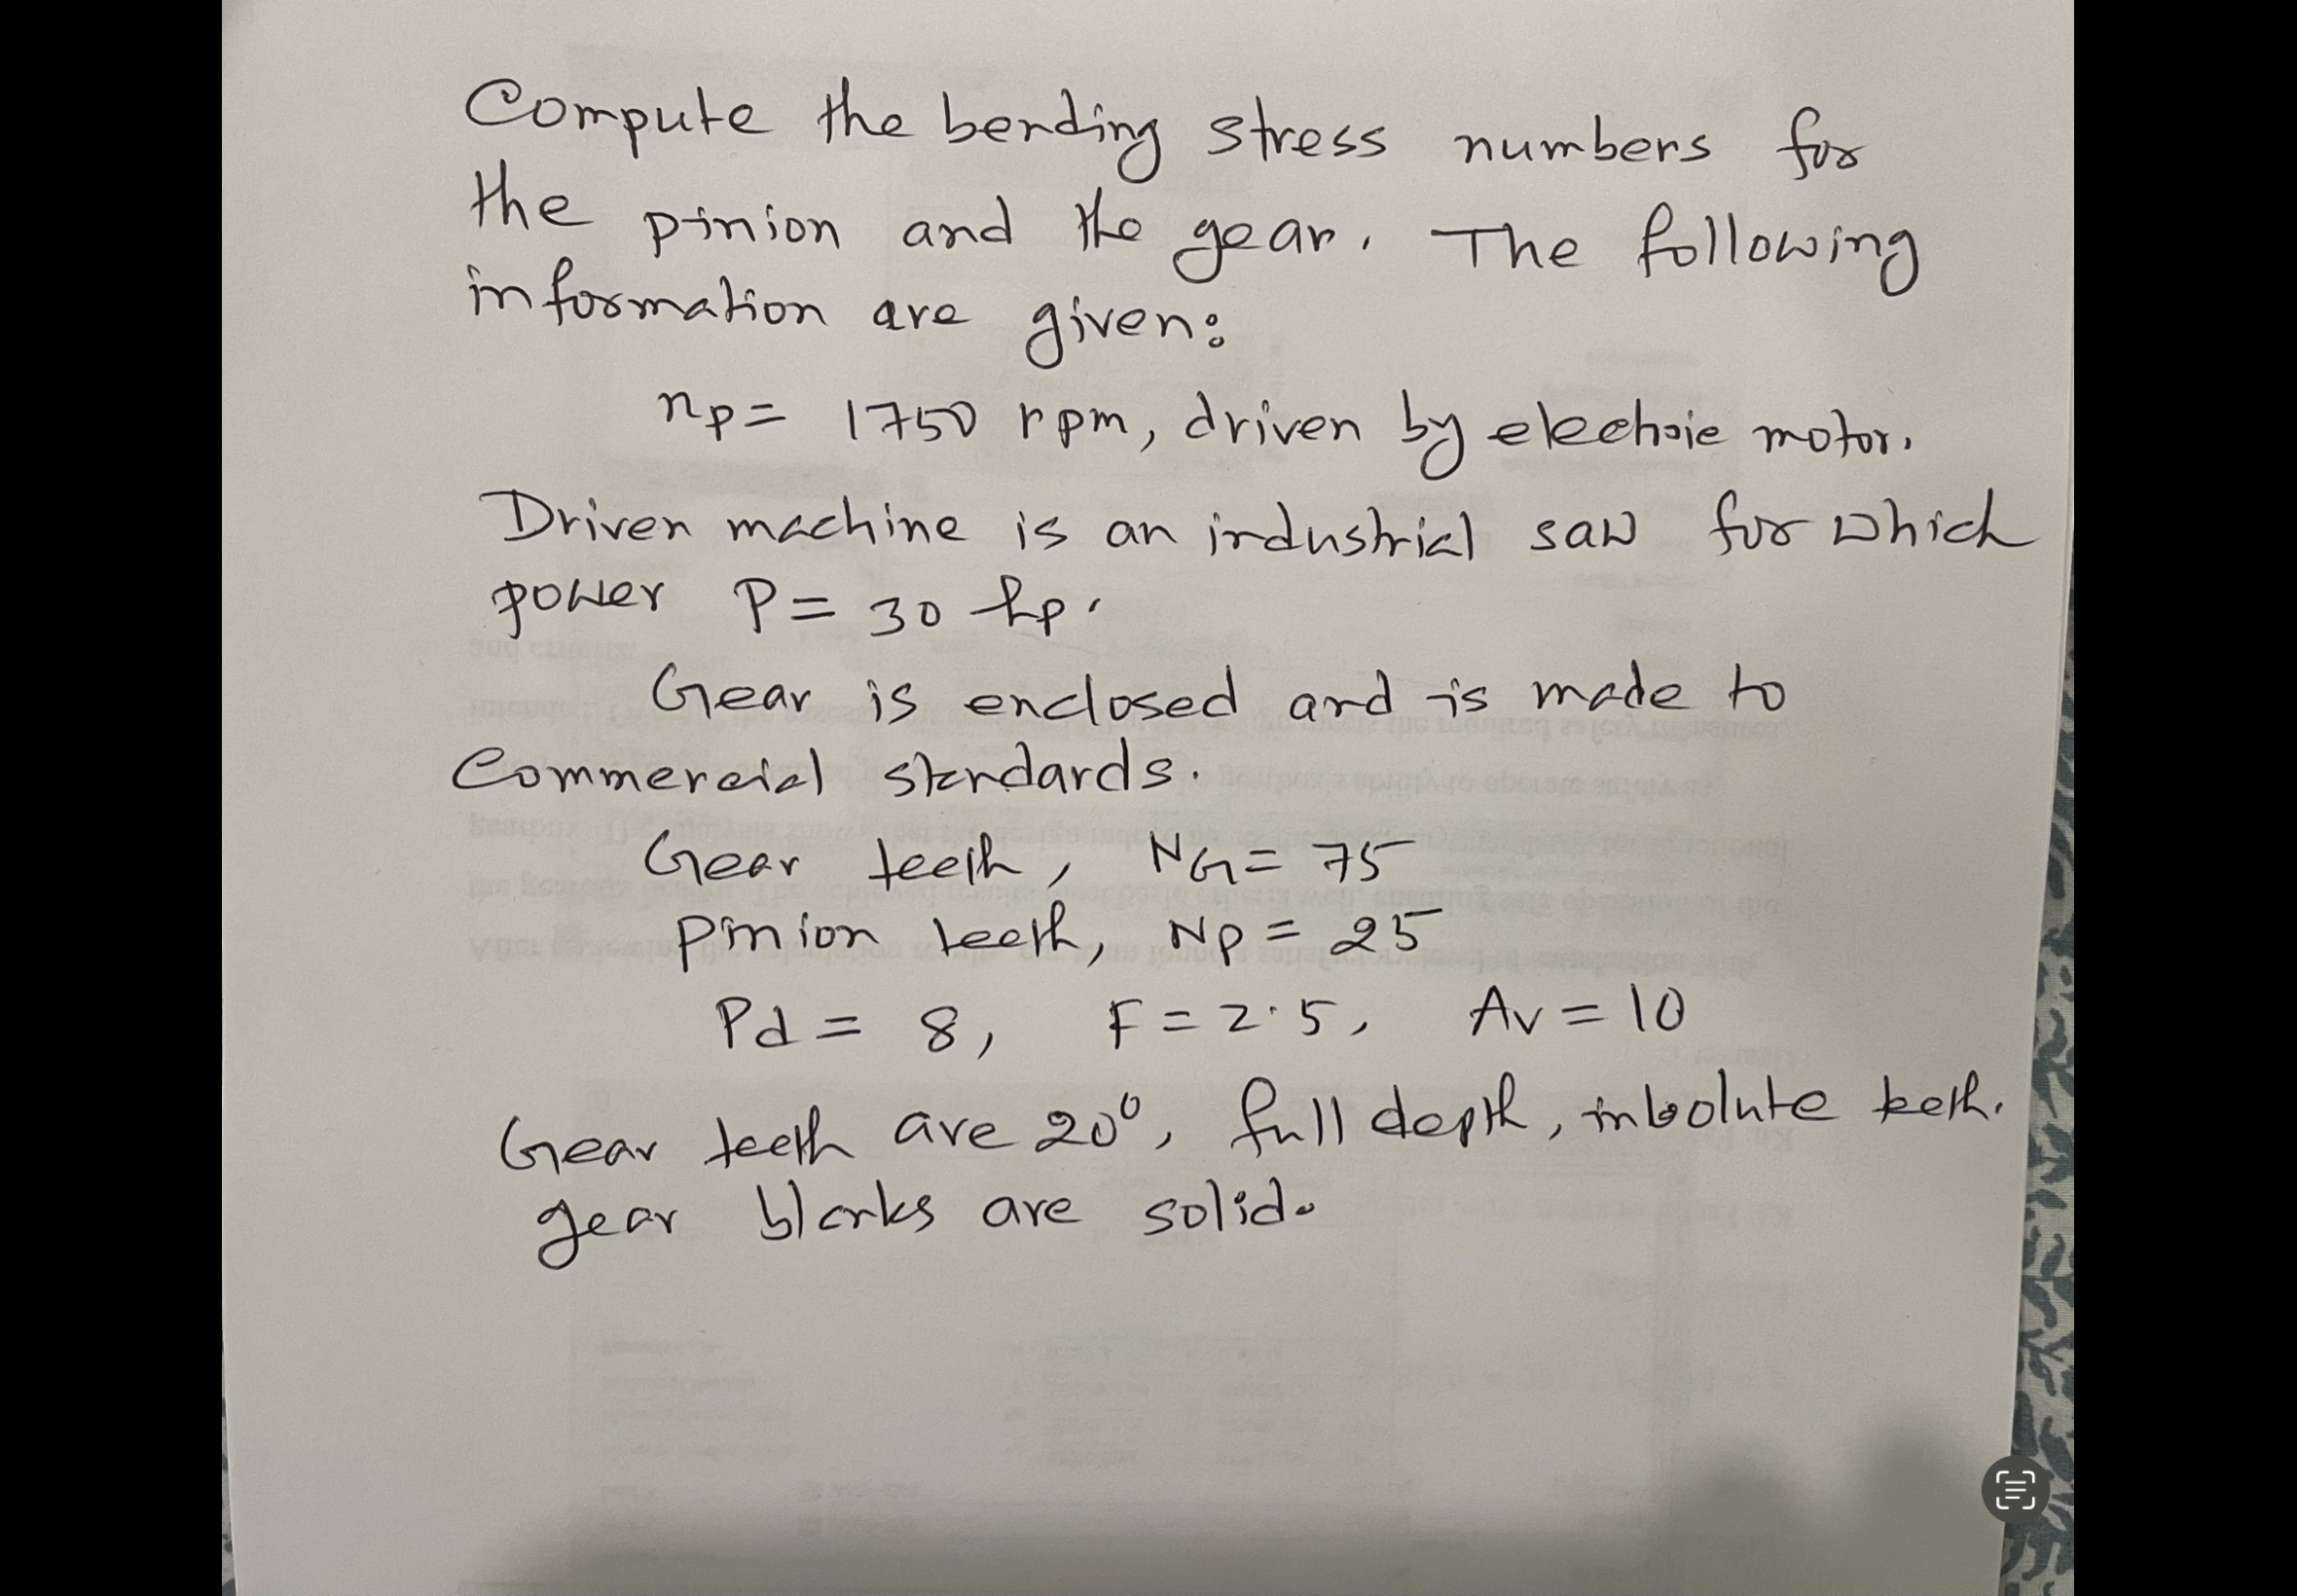 Compute the bending stress numbers for
the pinion and the gear. The following
information are given:
np = 1750 rpm, driven by electric motor.
Driven machine is an industrial saw for which
power P = 30 hp.
Gear is enclosed and is made to
commercial standards.
Gear teeth, NG = 75
pinion teeth, Np = 25
Pd = 8, F = 2.5, Av = 10
Gear teeth are 20°, full depth, involute teeth.
gear blanks are solid.